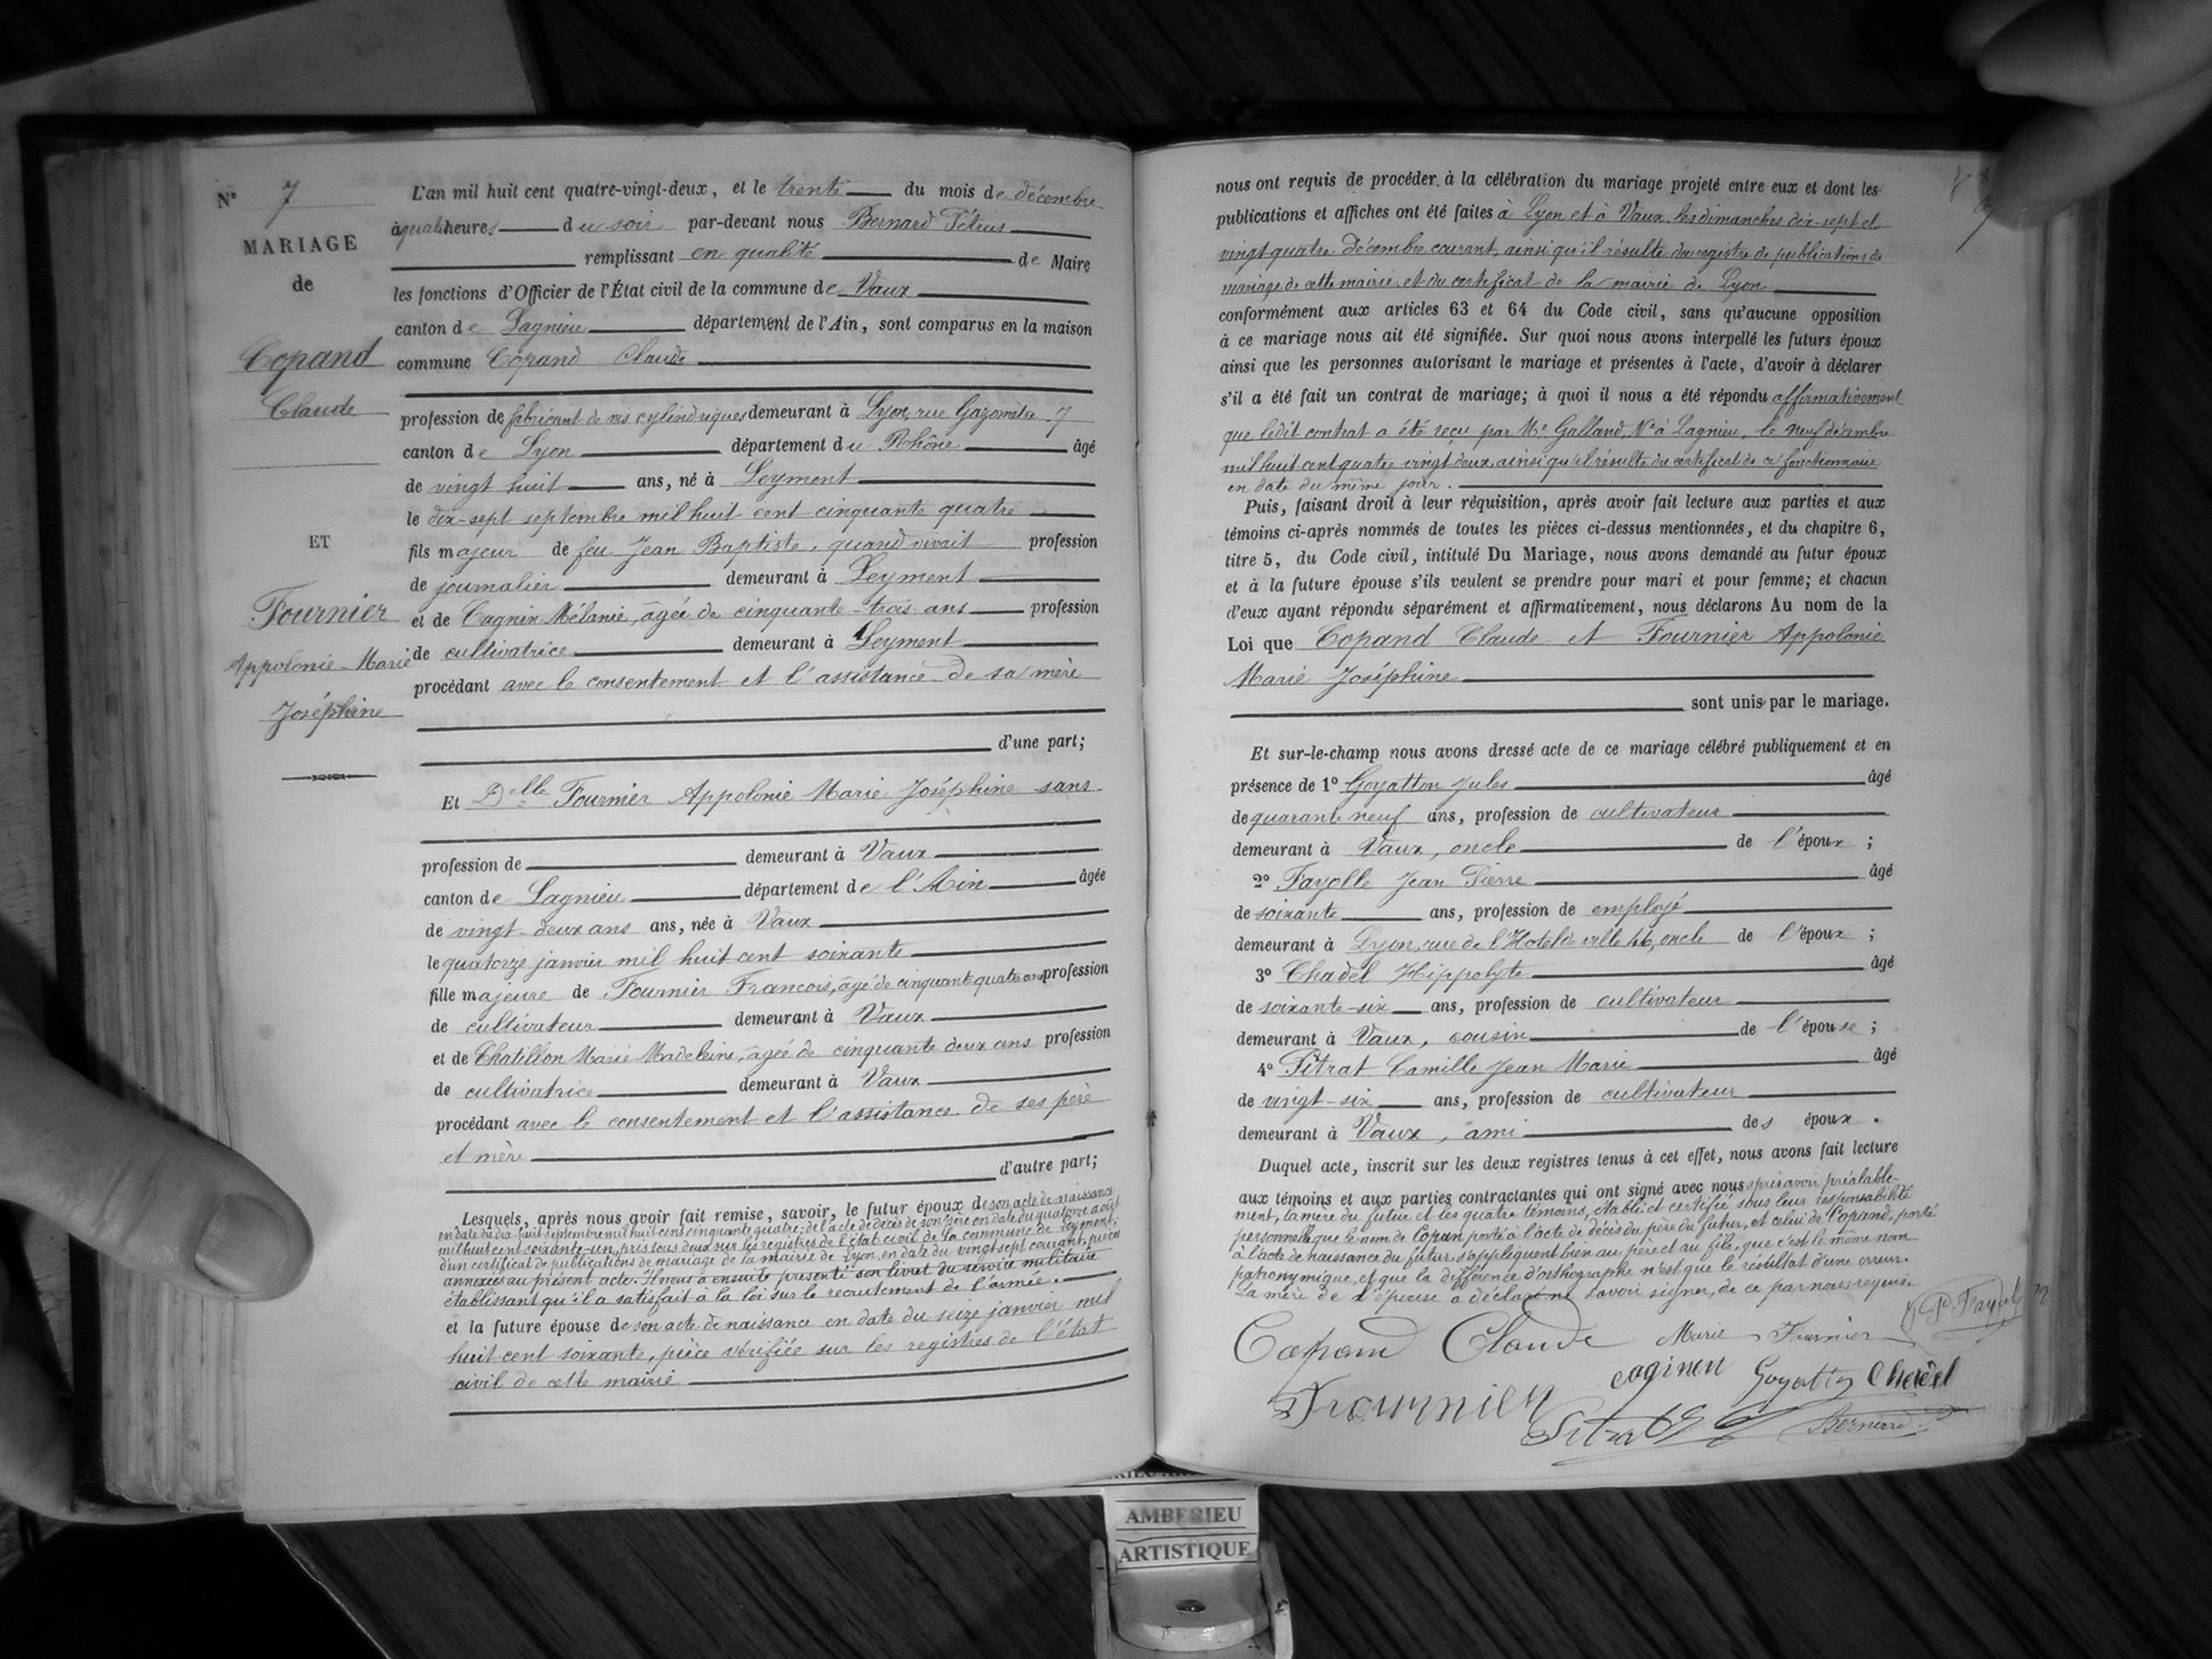 N° 7
MARIAGE
de
Copand
Claude
ET
Fournier
Appolonie-Marie
Joséphine
L'an mil huit cent quatre-vingt-deux, et le trente du mois de décembre
à quatre heures du soir par-devant nous Bernard Pétrus
remplissant en qualité de Maire
les fonctions d'Officier de l'État civil de la commune de Vaux
canton de Lagnieu département de l'Ain, sont comparus en la maison
commune Copand Claude
profession de fabricant de vis cylindriques demeurant à Lyon, rue Gazomètre 7
canton de Lyon département du Rhône âgé
de vingt huit ans, né à Leyment
le dix-sept septembre mil huit cent cinquante quatre
fils majeur de feu Jean Baptiste, quand vivait profession
de journalier demeurant à Leyment
et de Cagnin Mélanie, âgée de cinquante-trois ans profession
de cultivatrice demeurant à Leyment
procédant avec le consentement et l'assistance de sa mère
d'une part;
Et Delle Fournier Appolonie Marie Joséphine sans
profession de demeurant à Vaux
canton de Lagnieu département de l'Ain âgée
de vingt-deux ans ans, née à Vaux
le quatorze janvier mil huit cent soixante
fille majeure de Fournier Francois, âgé de cinquante quatre ans profession
de cultivateur demeurant à Vaux
et de Chatillon Marie Madeleine, âgée de cinquante deux ans profession
de cultivatrice demeurant à Vaux
procédant avec le consentement et l'assistance de ses père
et mère
d'autre part;
Lesquels, après nous avoir fait remise, savoir, le futur époux de son acte de naissance
en date du dix-huit septembre mil huit cent cinquante quatre; de l'acte de décès de son père en date du quatorze août
mil huit cent soixante-un, pris tous deux sur les registres de l'état civil de la commune de Leyment;
d'un certificat de publications de mariage de la mairie de Lyon, en date du vingt-sept courant, pièces
annexées au présent acte. Il nous a ensuite présenté son livret du service militaire
établissant qu'il a satisfait à la loi sur le recrutement de l'armée.
et la future épouse de son acte de naissance en date du seize janvier mil
huit cent soixante, pièce vérifiée sur les registres de l'état
civil de cette mairie
nous ont requis de procéder à la célébration du mariage projeté entre eux et dont les
publications et affiches ont été faites à Lyon et à Vaux, les dimanches dix-sept et
vingt quatre décembre courant, ainsi qu'il résulte du registre de publications de
mariage de cette mairie et du certificat de la mairie de Lyon
conformément aux articles 63 et 64 du Code civil, sans qu'aucune opposition
à ce mariage nous ait été signifiée. Sur quoi nous avons interpellé les futurs époux
ainsi que les personnes autorisant le mariage et présentes à l'acte, d'avoir à déclarer
s'il a été fait un contrat de mariage; à quoi il nous a été répondu affirmativement
que ledit contrat a été reçu par Me Galland, Nre à Lagnieu, le neuf décembre
mil huit cent quatre vingt deux, ainsi qu'il résulte du certificat de ce fonctionnaire
en date du même jour.
Puis, faisant droit à leur réquisition, après avoir fait lecture aux parties et aux
témoins ci-après nommés de toutes les pièces ci-dessus mentionnées, et du chapitre 6,
titre 5, du Code civil, intitulé Du Mariage, nous avons demandé au futur époux
et à la future épouse s'ils veulent se prendre pour mari et pour femme; et chacun
d'eux ayant répondu séparément et affirmativement, nous déclarons Au nom de la
Loi que Copand Claude et Fournier Appolonie
Marie Joséphine
sont unis par le mariage.
Et sur-le-champ nous avons dressé acte de ce mariage célébré publiquement et en
présence de 1° Goyatton Jules âgé
de quarante neuf ans, profession de cultivateur
demeurant à Vaux, oncle de l'époux ;
2° Fayolle Jean Pierre âgé
de soixante ans, profession de employé
demeurant à Lyon, rue de l'Hotel de ville 46, oncle de l'époux ;
3° Chadel Hippolyte âgé
de soixante-six ans, profession de cultivateur
demeurant à Vaux, cousin de l'épouse ;
4° Pitrat Camille Jean Marie âgé
de vingt-six ans, profession de cultivateur
demeurant à Vaux, ami des époux.
Duquel acte, inscrit sur les deux registres tenus à cet effet, nous avons fait lecture
aux témoins et aux parties contractantes qui ont signé avec nous après avoir préalable-
ment, la mère du futur et les quatre témoins, établi et certifié sous leur responsabilité
personnelle que le nom de Copan, porté à l'acte de décès du père du futur, et celui de Copand, porté
à l'acte de naissance du futur, s'appliquent bien au père et au fils, que c'est le même nom
patronymique, et que la différence d'orthographe n'est que le résultat d'une erreur.
La mère de l'épouse a déclaré ne savoir signer, de ce par nous requis.
Copand Claude Marie Fournier
Fournier cagnien Goyatton Chadel
Pitrat Bernard P
AMBERIEU
ARTISTIQUE